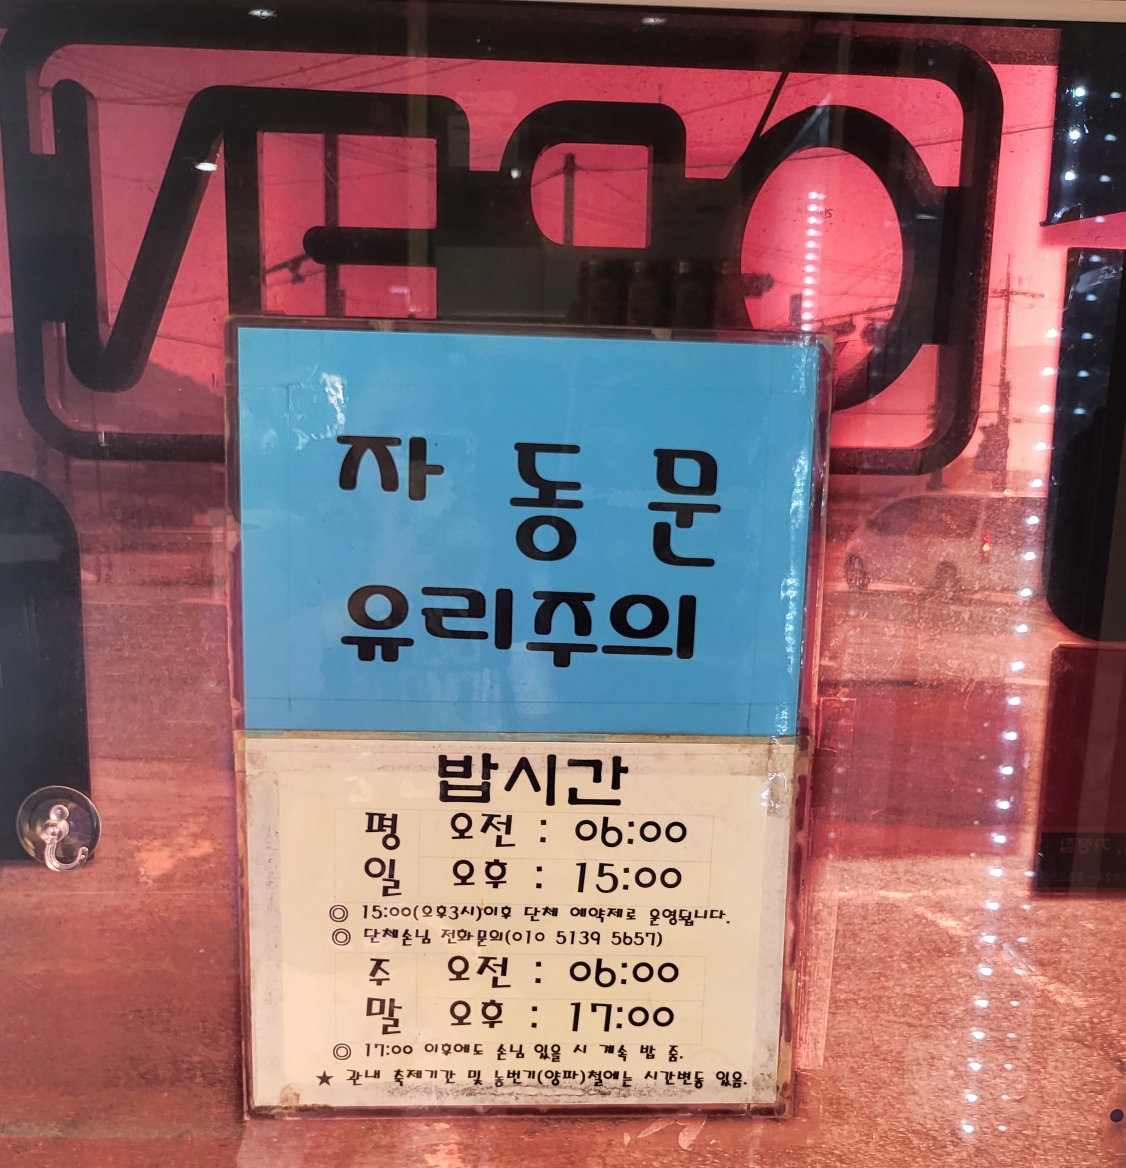 OPEN
자 동 문
유리주의
밥시간
평 오전 : 06:00
일 오후 : 15:00
◎ 15:00(오후3시)이후 단체 예약제로 운영됩니다.
◎ 단체손님 전화문의(010 5139 5657)
주 오전 : 06:00
말 오후 : 17:00
◎ 17:00 이후에도 손님 있을 시 계속 밥 줌.
★ 관내 축제기간 및 농번기(양파)철에는 시간변동 있음.